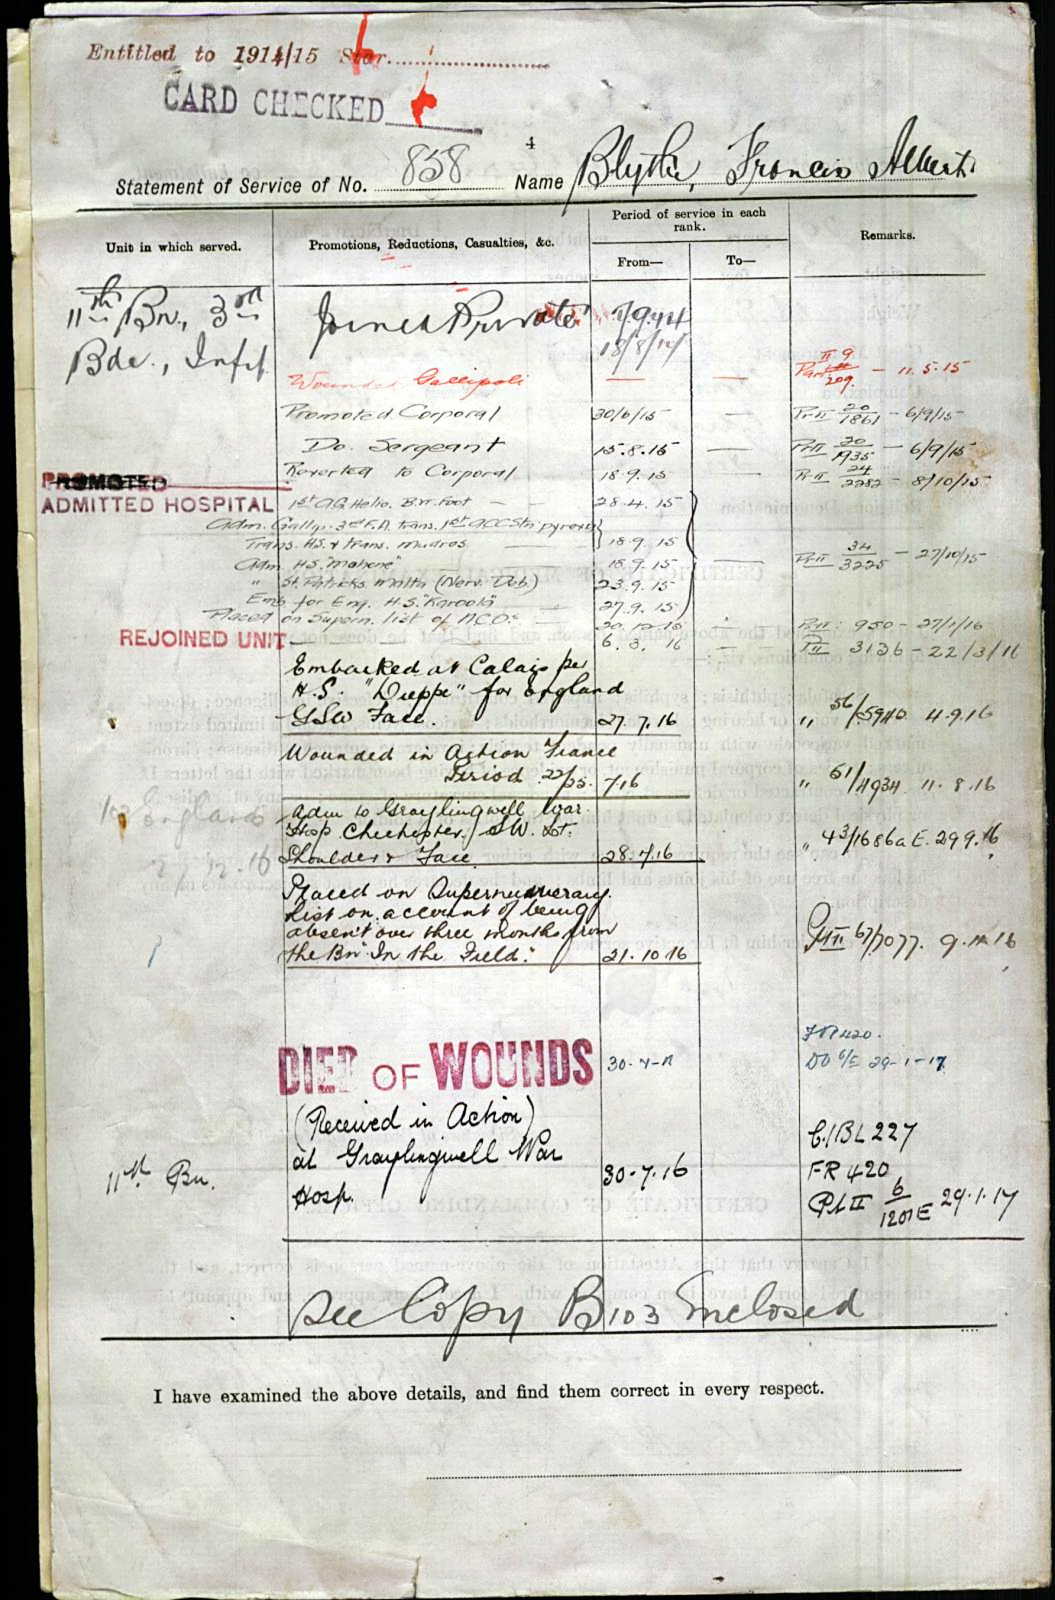 Entitled to 1914/15 Star
CARD CHECKED
4
Statement of Service of No. 858 Name Blythe, Francis Albert
Unit in which served.
Promotions, Reductions, Casualties, &c.
Period of service in each rank.
From—
To—
Remarks.
11th Bn., 3rd Bde., Inf
Joined Private
18/8/14
Wounded Gallipoli — — Part II 9 209 — 11.5.15
Promoted Corporal 30/6/15 — Pt II 20/1861 - 6/9/15
Do. Sergeant 15.8.15 — Pt II 20/1935 - 6/9/15
Reverted to Corporal 18.9.15 — Pt II 24/2282 - 8/10/15
PROMOTED
ADMITTED HOSPITAL
1st A.G. Helio. B.W. Foot — 28.4.15
Adm. Gallip. 3rd F.A. trans. 1st ACCStn pyrexia
Trans. H.S. & trans. Mudros — 18.9.15
Adm H.S. "Maheno" 18.9.15 — Pt II 34/3225 - 27/10/15
" St. Patricks Malta (Nerv. Deb.) 23.9.15
Emb for Eng. H.S. "Karoola" 27.9.15
Placed on Supern. list of NCOs — 20.12.15 — Pt II: 950 - 27/1/16
REJOINED UNIT — 6.3.16 — Pt II 3136 - 22/3/16
Embarked at Calais per
H.S. "Dieppe" for England
GSW Face. 27.7.16 " 56/5940 4.9.16
Wounded in Action France
Period 22/25.7.16 " 51/4934 11.8.16
Adm to Graylingwell War
Hosp. Chichester, S.W. Lt.
Shoulder & Face 28.7.16 " 43/1686a E. 29.9.16
England
Placed on Supernumerary
List on account of being
absent over three months from
the Bn "In the Field." 21.10.16 Pt II 67/7077. 9.11.16
DIED OF WOUNDS
FR 420.
DO 6/E 29-1-17
(Received in Action)
at Graylingwell War
Hosp.
11th Bn.
30-7.16
C/BL 227
FR 420
Pt II 6/1201E 29.1.17
See Copy B103 Enclosed
I have examined the above details, and find them correct in every respect.